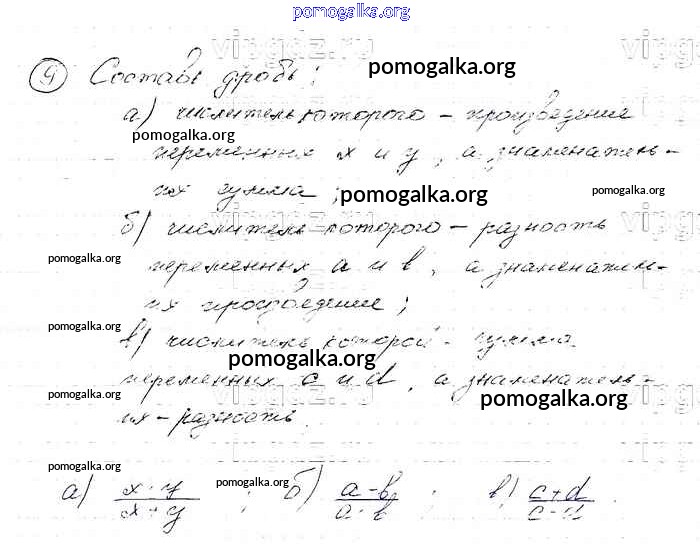 pomogalka.org
vipgdz.ru
9 Составь дробь:
pomogalka.org
а) числитель которого - произведение
pomogalka.org
переменных x и y, а знаменатель-
их сумма;
pomogalka.org
pomogalka.org
б) числитель которого - разность
pomogalka.org
переменных a и b, а знаменатель-
их произведение;
pomogalka.org
в) числитель которой - сумма
pomogalka.org
переменных c и d, а знаменатель-
pomogalka.org
pomogalka.org
их - разность.
pomogalka.org
pomogalka.org
а) x·y / x+y ; б) a-b / a·b ; в) c+d / c-d .
pomogalka.org
pomogalka.org